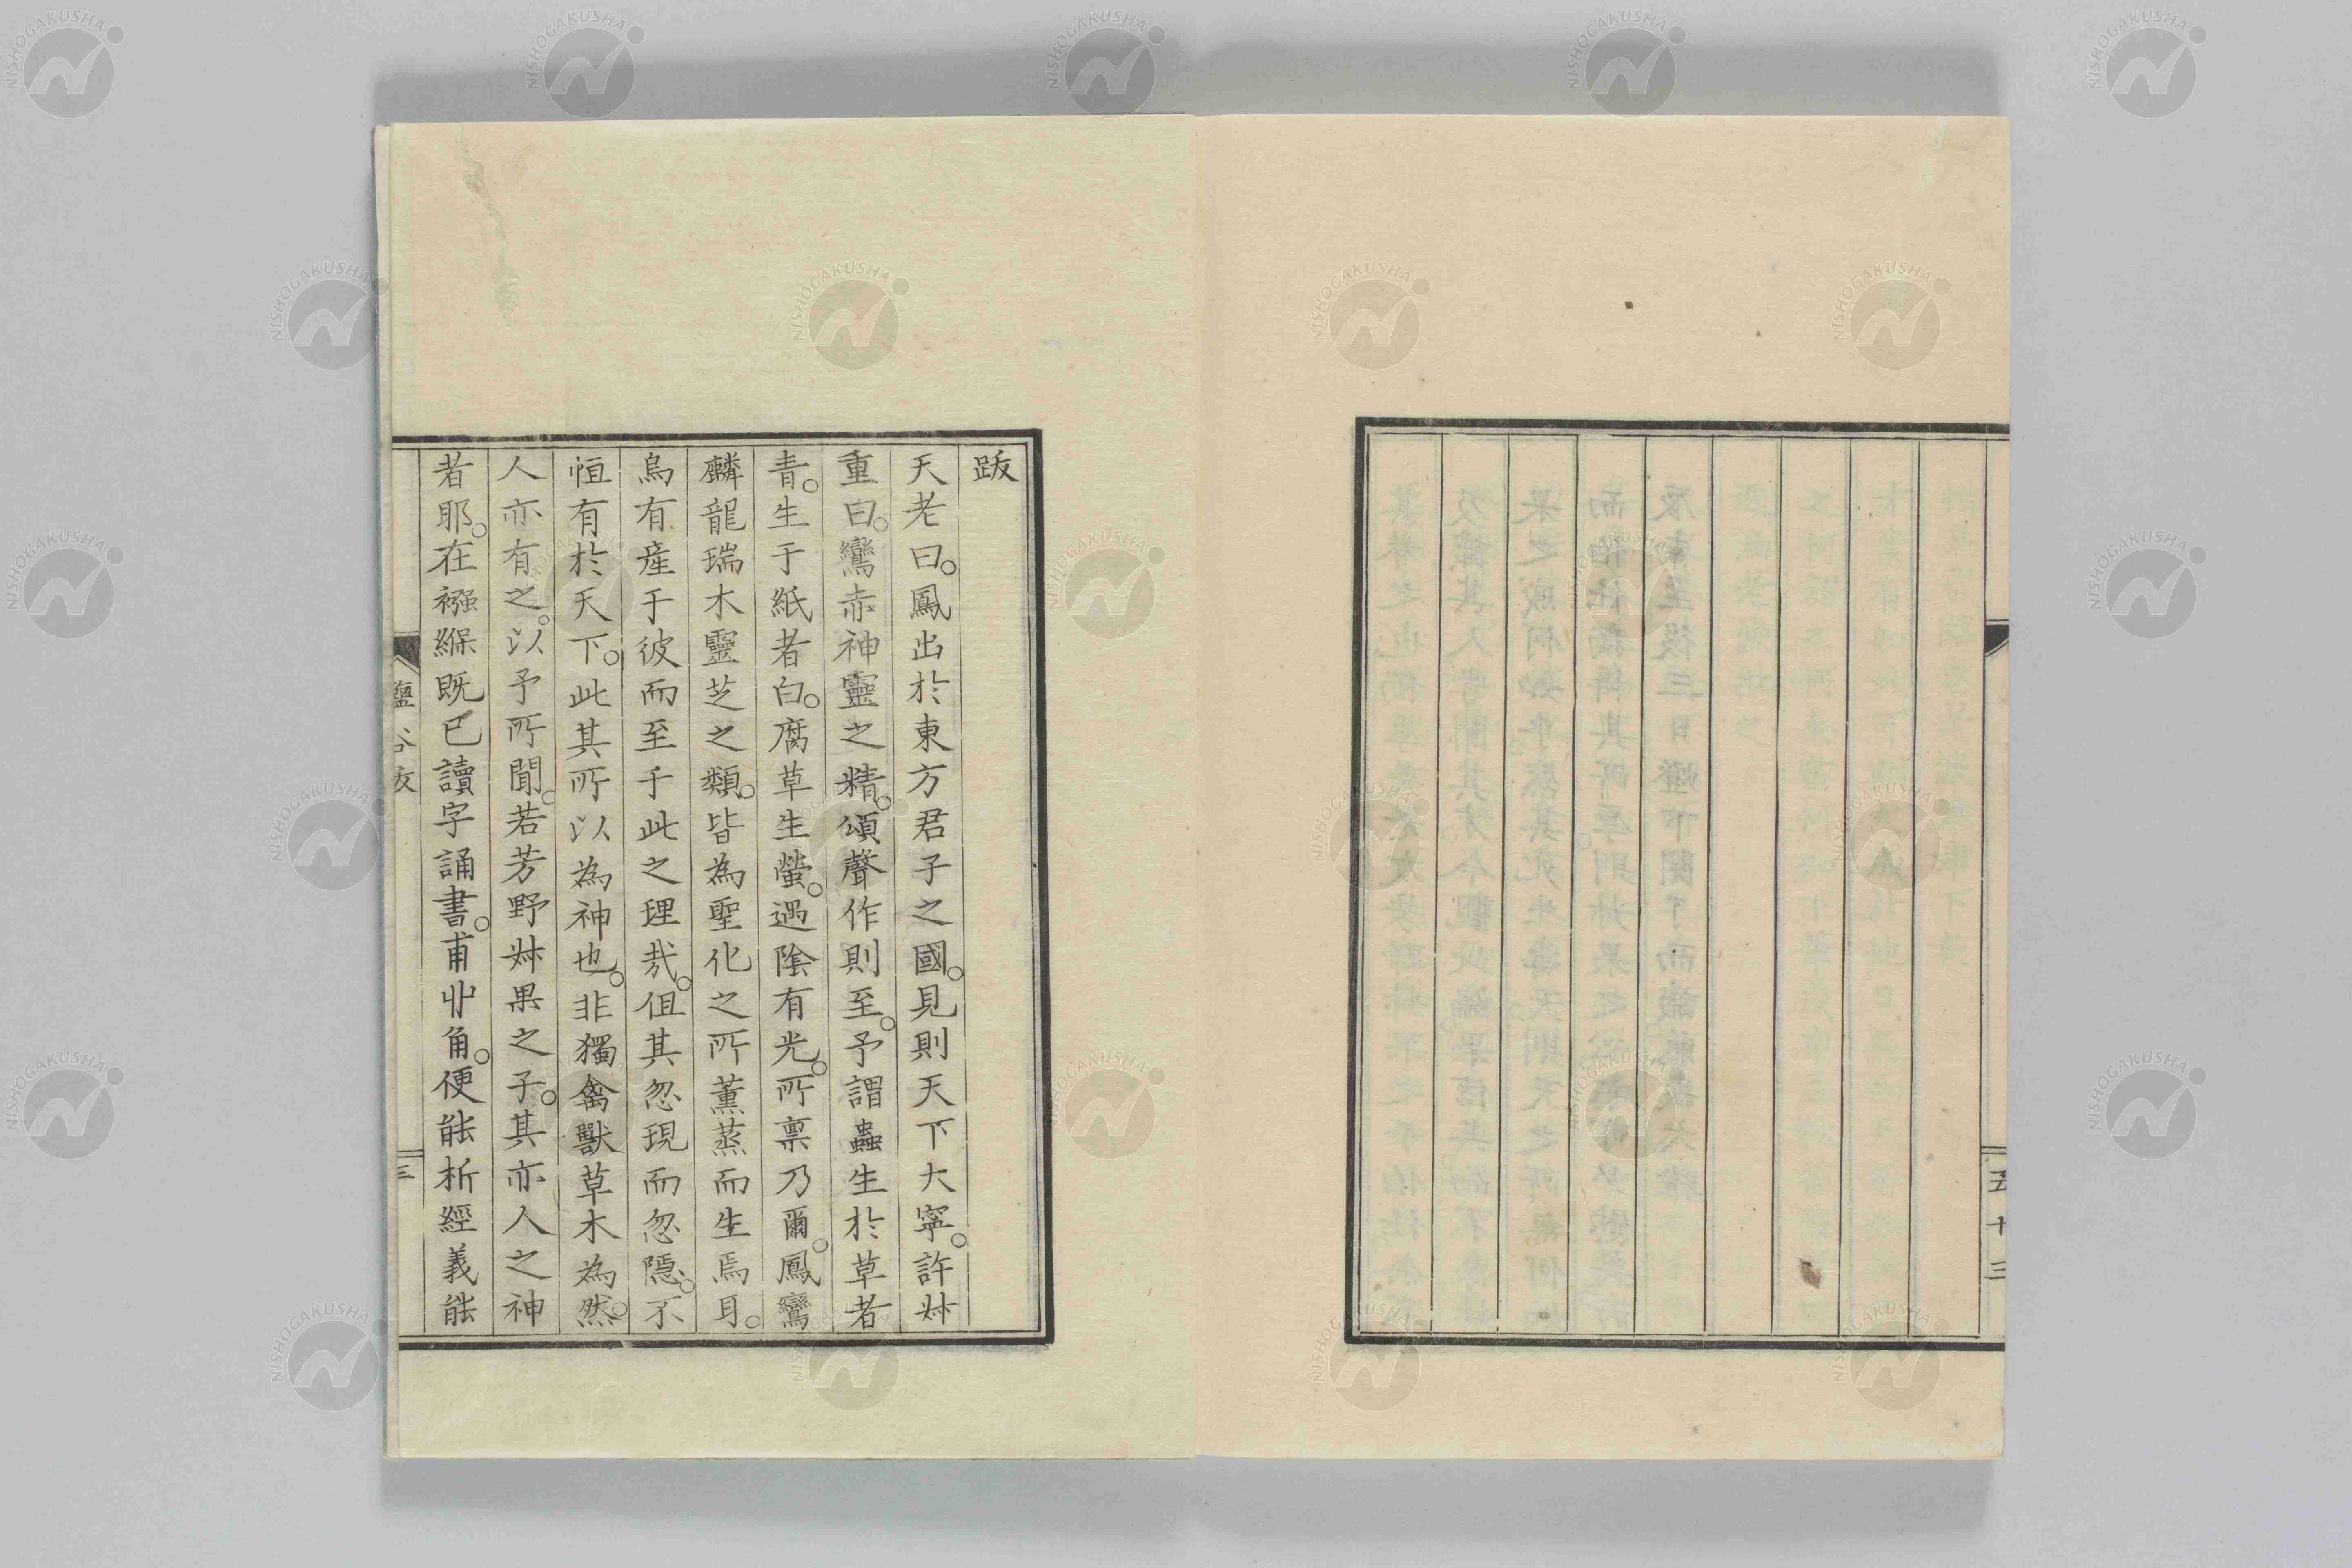 五十三
跋
天老曰。鳳出於東方君子之國。見則天下大寧。許叔
重曰。鸞赤神靈之精。頌聲作則至。予謂蟲生於草者
青。生于紙者白。腐草生螢。遇陰有光。所稟乃爾。鳳鸞
麟龍瑞木靈芝之類。皆為聖化之所薫蒸而生焉耳。
烏有産于彼而至于此之理哉。但其忽現而忽隱。不
恒有於天下。此其所以為神也。非獨禽獸草木為然。
人亦有之。以予所聞。若芳野叔果之子。其亦人之神
者耶。在襁緥既已讀字誦書。甫丱角。便能析經義能
鹽谷跋
三
NISHOGAKUSHA